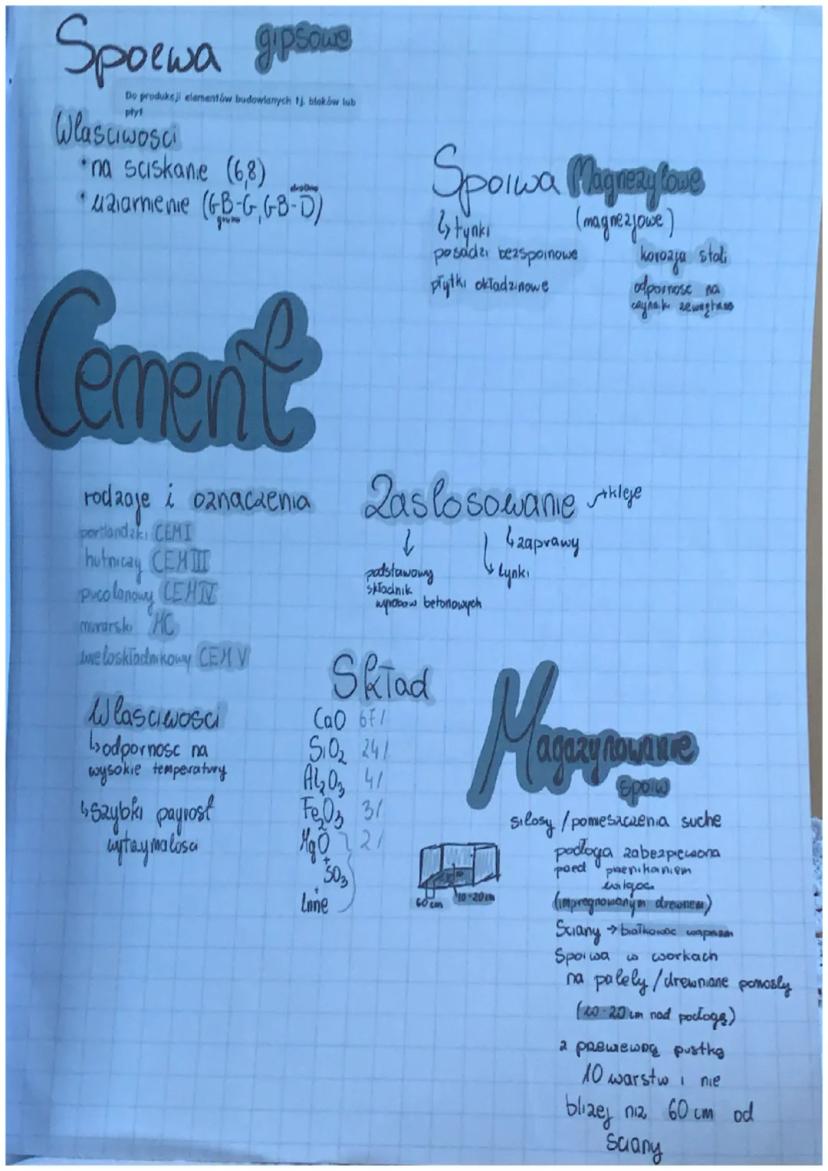 Spoiwa gipsowe
Do produkcji elementów budowlanych tj. bloków lub
płyt
Własciwosci
• na sciskanie (6,8)
• uziarnienie (GB-G, GB-D)
grubo
drobno
Spoiwa Magnezytowe
(magnezjowe)
↳ tynki
posadzi bezspoinowe
płytki okładzinowe
korozja stali
odpornosc na
czynniki zewnętrzne
Cement
rodzaje i oznaczenia
portlandzki CEM I
hutniczy CEM III
pucolanowy CEM IV
murarski MC
wieloskładnikowy CEM V
Zastosowanie → kleje
↳ zaprawy
↳ tynki
podstawowy
składnik
wyrobow betonowych
Wlasciwosci
↳ odpornosc na
wysokie temperatury
↳ szybki przyrost
wytrzymalosci
Skład
CaO
SiO2 24/
Al2O3 4/
Fe2O3 3/
MgO 2/
+
SO3
+
Inne
60 cm
10-20cm
Magazynowanie
spoiw
silosy / pomieszczenia suche
podłoga zabezpieczona
przed przenikaniem
wilgoci
(impregnowanym drewnem)
Sciany → białkowac wapnem
Spoiwa w workach
na palety / drewniane pomosty
(10-20 cm nad podłogą)
z powietrzną pustką
10 warstw i nie
blizej niz 60 cm od
sciany